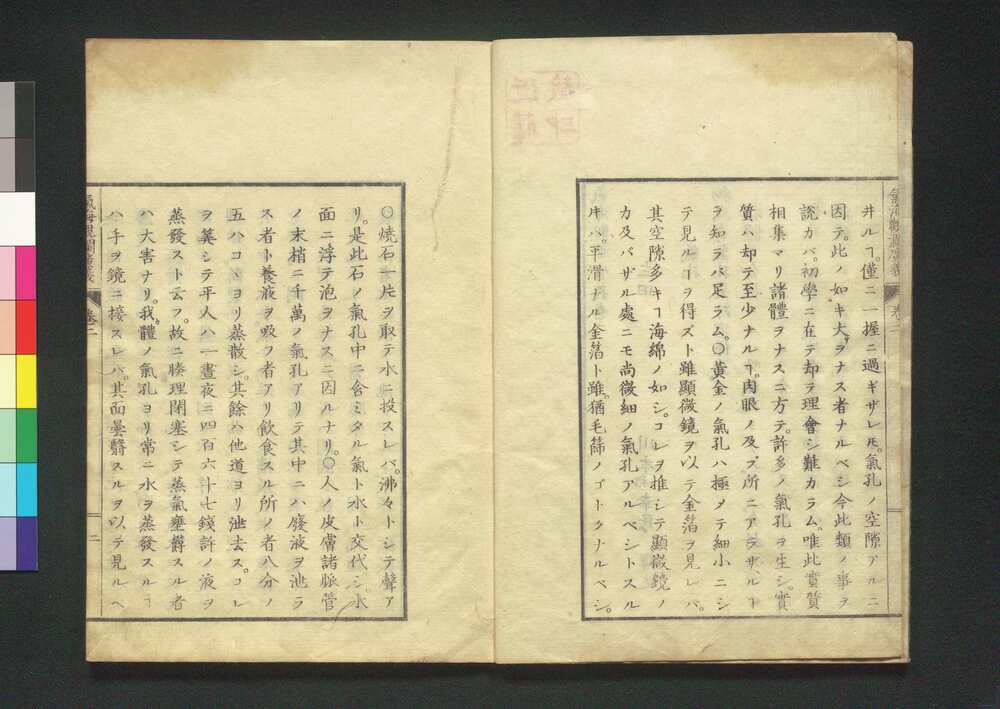 氣海觀瀾廣義
卷二
井ルヿ。僅ニ一握ニ過ギザレ𪜈。氣孔ノ空隙アルニ
因テ。此ノ如キ大ヲナス者ナルベシ今此類ノ事ヲ
說カバ。初學ニ在テ却テ理會シ難カラム。唯此實質
相集マリ諸體ヲナスニ方テ。許多ノ氣孔ヲ生シ。實
質ハ却テ至少ナルヿ。肉眼ノ及ブ所ニアラザルヿ
ヲ知ラバ足ラム。〇黃金ノ氣孔ハ極メテ細小ニシ
テ見ルヿヲ得ズト雖顯微鏡ヲ以テ金箔ヲ見レバ。
其空隙多キヿ海綿ノ如シ。コレヲ推シテ顯微鏡ノ
力及バザル處ニモ尚微細ノ氣孔アルベシトスル
キハ。平滑ナル金箔ト雖。猶毛篩ノゴトクナルベシ。
〇燒石一片ヲ取テ水ニ投スレバ。沸々トシテ聲ア
リ。是此石ノ氣孔中ニ含ミタル氣ト水ト交代シ。水
面ニ浮テ泡ヲナスニ因ルナリ。〇人ノ皮膚諸脈管
ノ末梢ニ千萬ノ氣孔アリテ其中ニハ廢液ヲ泄ラ
ス者ト養液ヲ吸フ者アリ飮食スル所ノ者八分ノ
五ハコヽヨリ蒸散シ。其餘ハ他道ヨリ泄去ス。コレ
ヲ筭シテ平人ハ一晝夜ニ四百六十七錢許ノ液ヲ
蒸發スト云フ。故ニ腠理閉塞シテ蒸氣壅欝スル者
ハ大害ナリ。我體ノ氣孔ヨリ常ニ水ヲ蒸發スルヿ
ハ手ヲ鏡ニ接スレバ。其面曇翳スルヲ以テ見ルベ
氣海觀瀾廣義
卷二
二